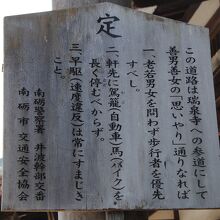 定
この道路は瑞泉寺への参道にして
善男善女の「思いやり」通りなれば
一、老若男女を問わず歩行者を優先
すべし。
二、軒先に駕籠(自動車)馬(バイク)を
長く停むべからず。
三、早駆(速度違反)は常にすまじき
こと。
南砺警察署 井波幹部交番
南砺市交通安全協会